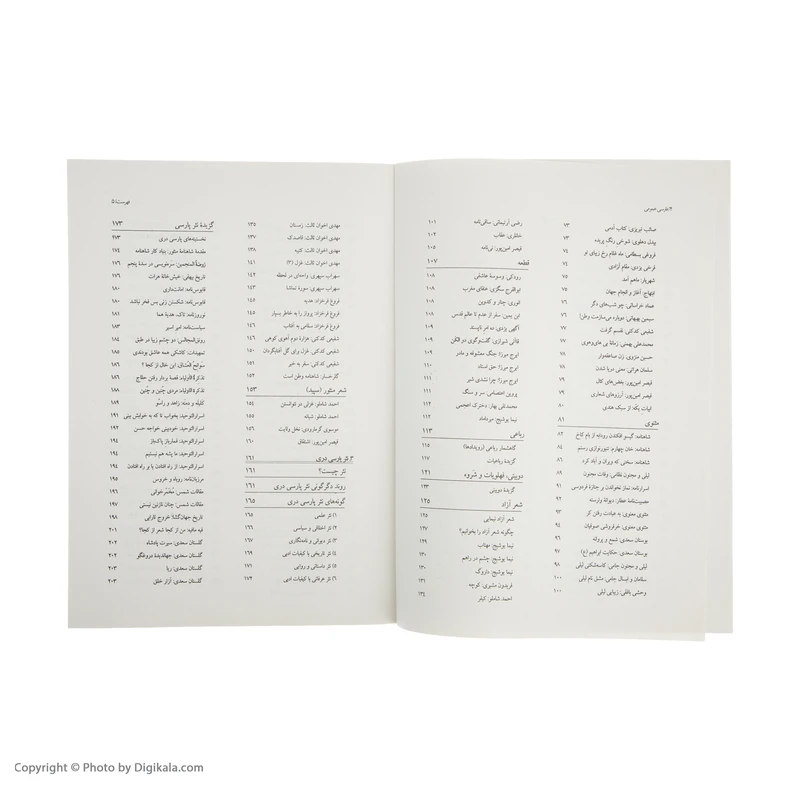 ۴/ فارسی عمومی
صائب تبریزی: کتاب آدمی ۷۳
بیدل دهلوی: شوخی رنگ پریده ۷۳
فروغی بسطامی: ماه غلام رخ زیبای تو ۷۴
فرخی یزدی: مقام آزادی ۷۴
شهریار: ماهم آمد ۷۵
ابتهاج: آغاز و انجام جهان ۷۵
عماد خراسانی: چو شب‌های دگر ۷۶
سیمین بهبهانی: دوباره می‌سازمت وطن! ۷۶
شفیعی کدکنی: قسم گرفت ۷۷
محمدعلی بهمنی: زمانهٔ بی های‌وهوی ۷۷
حسین منزوی: زن صاعقه‌وار ۷۸
سلمان هراتی: معنی دریا شدن ۷۸
قیصر امین‌پور: بغض‌های کال ۷۹
قیصر امین‌پور: آرزوهای شعاری ۷۹
ابیات یگه: از سبک هندی ۸۰
مثنوی ۸۱
شاهنامه: گیسو افکندن رودابه از بام کاخ ۸۲
شاهنامه: خان چهارم: تنبورنوازی رستم ۸۴
شاهنامه: سخنی که ویران و آباد کرد ۸۶
لیلی و مجنون نظامی: وفات مجنون ۸۹
اسرارنامه: نماز نخواندن بر جنازهٔ فردوسی ۹۱
مصیبت‌نامهٔ عطار: دیوانهٔ وارسته ۹۲
مثنوی معنوی: به عیادت رفتن کر ۹۳
مثنوی معنوی: خرفروشی صوفیان ۹۴
بوستان سعدی: شمع و پروانه ۹۶
بوستان سعدی: حکایت ابراهیم (ع) ۹۷
لیلی و مجنون جامی: کاسه‌شکنی لیلی ۹۸
سلامان و ابسال جامی: مشق نام لیلی ۱۰۰
وحشی بافقی: زیبایی لیلی ۱۰۰
رضی آرتیمانی: ساقی‌نامه ۱۰۱
خانلری: عقاب ۱۰۲
قیصر امین‌پور: نی‌نامه ۱۰۵
قطعه ۱۰۷
رودکی: وسوسهٔ عاشقی ۱۰۸
ابوالفرج سگزی: عنقای مغرب ۱۰۸
انوری: چنار و کدوبن ۱۰۸
ابن یمین: سفر از عدم تا عالم قدس ۱۰۸
آگهی یزدی: ده امر ناپسند ۱۰۹
قاآنی شیرازی: گفت‌وگوی دو الکن ۱۰۹
ایرج میرزا: جنگ معشوقه و مادر ۱۰۹
ایرج میرزا: حق استاد ۱۱۰
ایرج میرزا: چرا نشدی شیر ۱۱۱
پروین اعتصامی: سر و سنگ ۱۱۱
محمدتقی بهار: دخترک اعجمی ۱۱۲
نیما یوشیج: میرداماد ۱۱۲
رباعی ۱۱۳
گاهشمار رباعی (رویدادها) ۱۱۵
گزیدهٔ رباعیات ۱۱۷
دوبیتی، فهلویات و شروه ۱۲۱
گزیدهٔ دوبیتی ۱۲۳
شعر آزاد ۱۲۵
شعر آزاد نیمایی ۱۲۵
چگونه شعر آزاد را بخوانیم؟ ۱۲۷
نیما یوشیج: مهتاب ۱۲۹
نیما یوشیج: چشم در راهم ۱۳۰
نیما یوشیج: داروگ ۱۳۰
فریدون مشیری: کوچه ۱۳۱
احمد شاملو: کیفر ۱۳۴
فهرست/ ۵
مهدی اخوان ثالث: زمستان ۱۳۵
مهدی اخوان ثالث: قاصدک ۱۳۷
مهدی اخوان ثالث: کتیبه ۱۳۸
مهدی اخوان ثالث: غزل (۳) ۱۴۱
سهراب سپهری: واحه‌ای در لحظه ۱۴۲
سهراب سپهری: سورهٔ تماشا ۱۴۳
فروغ فرخزاد: هدیه ۱۴۵
فروغ فرخزاد: پرواز را به خاطر بسپار ۱۴۵
فروغ فرخزاد: سلامی به آفتاب ۱۴۷
شفیعی کدکنی: هزارهٔ دوم آهوی کوهی ۱۴۷
شفیعی کدکنی: غزل برای گل آفتابگردان ۱۵۰
شفیعی کدکنی: سفر به خیر ۱۵۱
گلرخسار: شاهنامه وطن است ۱۵۲
شعر منثور (سپید) ۱۵۳
احمد شاملو: غزلی در نتوانستن ۱۵۴
احمد شاملو: شبانه ۱۵۵
موسوی گرمارودی: نخل ولایت ۱۵۶
قیصر امین‌پور: اشتقاق ۱۶۰
۲. نثر پارسی دری ۱۶۱
نثر چیست؟ ۱۶۱
روند دگرگونی نثر پارسی دری ۱۶۱
گونه‌های نثر پارسی دری ۱۶۵
۱) نثر علمی ۱۶۵
۲) نثر اخلاقی و سیاسی ۱۶۶
۳) نثر دیوانی و نامه‌نگاری ۱۶۷
۴) نثر تاریخی با کیفیات ادبی ۱۶۹
۵) نثر داستانی و روایی ۱۷۱
۶) نثر عرفانی با کیفیات ادبی ۱۷۲
گزیدهٔ نثر پارسی ۱۷۳
نخستینه‌های پارسی دری ۱۷۳
مقدمهٔ شاهنامهٔ منثور: بنیاد کار شاهنامه ۱۷۴
روضةالمنجمین: سرخ‌ویسی در سدهٔ پنجم ۱۷۶
تاریخ بیهقی: خیش‌خانهٔ هرات ۱۷۶
قابوس‌نامه: امانت‌داری ۱۸۰
قابوس‌نامه: شکستن زنی بس فخر نباشد ۱۸۰
نوروزنامه: تاک، هدیهٔ هما ۱۸۱
سیاست‌نامه: امیر اسیر ۱۸۳
رونق‌المجالس: دو چشم زیبا در طبق ۱۸۴
تمهیدات: کاشکی همه عاشق بودندی ۱۸۵
سوانح العشاق: این خال از کجا؟ ۱۸۶
تذکرةالاولیاء: قصهٔ بردار رفتن حلاج ۱۸۶
تذکرةالاولیاء: مردی چنین و چنین ۱۸۸
کلیله و دمنه: زاهد و راسو ۱۸۹
اسرارالتوحید: بخواب تا که به خوابش بینی ۱۹۱
اسرارالتوحید: خودبینی خواجه حسن ۱۹۲
اسرارالتوحید: قمارباز پاکباز ۱۹۴
اسرارالتوحید: ما بسته هم نیستیم ۱۹۴
اسرارالتوحید: از راه افتادن یا بر راه افتادن ۱۹۴
مرزبان‌نامه: روباه و خروس ۱۹۵
مقالات شمس: مُخمّرخوانی ۱۹۶
مقالات شمس: چنان نازنین نیستی ۱۹۷
تاریخ جهان‌گشا: خروج تارابی ۱۹۸
فیه مافیه: من از کجا شعر از کجا؟ ۲۰۱
گلستان سعدی: سیرت پادشاه ۲۰۲
گلستان سعدی: جهاندیدهٔ دروغگو ۲۰۲
گلستان سعدی: ریا ۲۰۳
گلستان سعدی: آزار خلق ۲۰۳
Copyright © Photo by Digikala.com